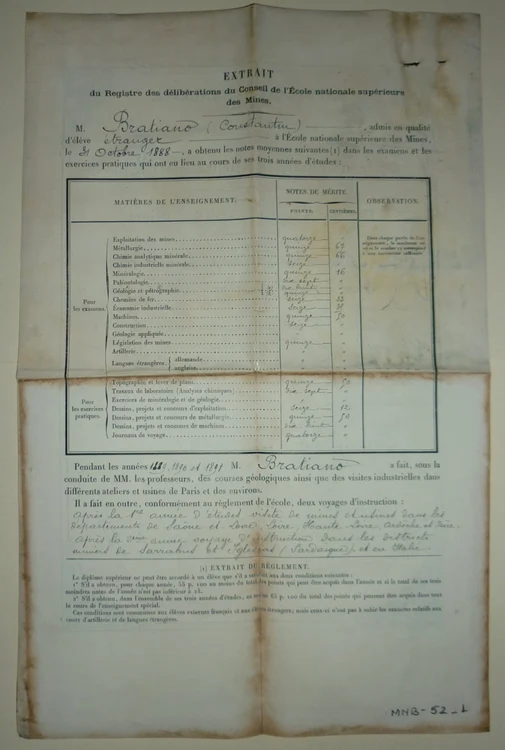 EXTRAIT
du Registre des délibérations du Conseil de l'École nationale supérieure
des Mines.
M. Bratiano (Constantin), admis en qualité
d'élève étranger à l'École nationale supérieure des Mines,
le 31 Octobre 1888, a obtenu les notes moyennes suivantes (1) dans les examens et les
exercices pratiques qui ont eu lieu au cours de ses trois années d'études :
MATIÈRES DE L'ENSEIGNEMENT. NOTES DE MÉRITE. OBSERVATION.
POINTS. CENTIÈMES.
Pour les examens.
Exploitation des mines quatorze "
Métallurgie quinze 67
Chimie analytique minérale quinze 66
Chimie industrielle minérale seize "
Minéralogie quinze 16
Paléontologie dix sept "
Géologie et pétrographie dix huit "
Chemins de fer seize 33
Économie industrielle seize
Machines quinze 50
Construction seize "
Géologie appliquée "
Législation des mines quinze "
Artillerie "
Langues étrangères { allemande
anglaise
Pour les exercices pratiques.
Topographie et levés de plans quinze 50
Travaux de laboratoire (Analyses chimiques) dix sept "
Exercices de minéralogie et de géologie " "
Dessins, projets et concours d'exploitation seize 12
Dessins, projets et concours de métallurgie quinze 50
Dessins, projets et concours de machines dix huit "
Journaux de voyage quatorze "
Pendant les années 1889, 1890 et 1891 M. Bratiano a fait, sous la
conduite de MM. les professeurs, des courses géologiques ainsi que des visites industrielles dans
différents ateliers et usines de Paris et des environs.
Il a fait en outre, conformément au règlement de l'école, deux voyages d'instruction :
après la 1ère année d'études visite de mines et usines dans les
départements de Saône et Loire, Loire, Haute Loire,
après la 2ème année voyage d'instruction dans les districts
miniers de Sarrabus et Iglesias (Sardaigne) et en Italie
(1) EXTRAIT DU RÈGLEMENT.
Le diplôme supérieur ne peut être accordé à un élève que s'il a satisfait aux deux conditions suivantes :
1° S'il a obtenu, pour chaque année, 55 p. 100 au moins du total des points qui peut être acquis dans l'année et si le total de ses trois
moindres notes de l'année n'est pas inférieur à 24.
2° S'il a obtenu, dans l'ensemble de ses trois années d'études, au moins 65 p. 100 du total des points qui peuvent être acquis dans tout
le cours de l'enseignement spécial.
Ces conditions sont communes aux élèves externes français et aux élèves étrangers, mais ceux-ci n'ont pas à subir les examens relatifs aux
cours d'artillerie et de langues étrangères.
MNB-52-1